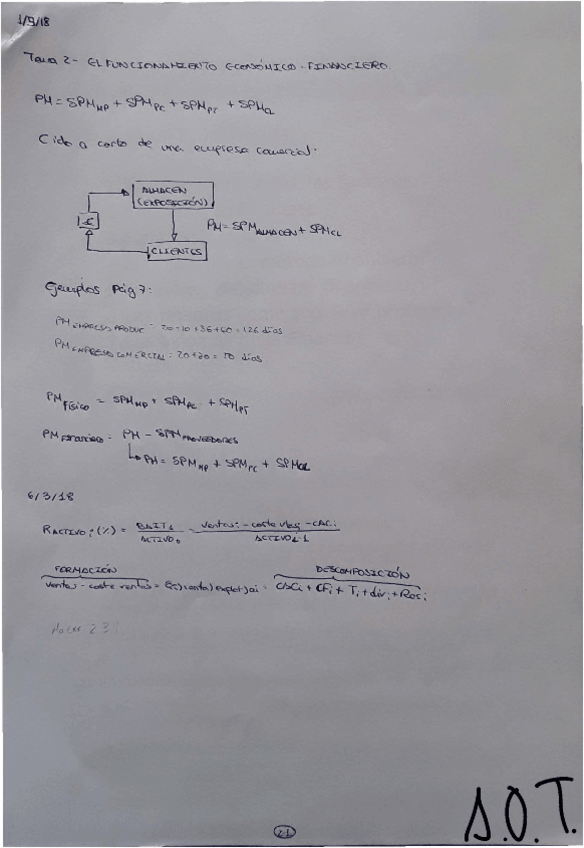 1/9/18
Tema 2- EL FUNCIONAMIENTO ECONÓMICO-FINANCIERO.
PM = SPM MP + SPM PC + SPM PT + SPM CL
Ciclo a corto de una empresa comercial.
ALMACEN
(EXPOSICIÓN)
PM = SPM ALMACEN + SPM CL
CLIENTES
Ejemplos Pág 7:
PM EMPRESA PRODUC = 20+10+36+60 = 126 días
PM EMPRESA COMERCIAL =
días
PM FÍSICO = SPM MP + SPM PC + SPM PT
PM FINANCIERO = PM - SPM PROVEEDORES
PM = SPM MP + SPM PC + SPM CL
6/3/18
R ACTIVO i (%) = BAIT i / ACTIVO = ventas i - coste vtas i - CAC i / ACTIVO i-1
FORMACIÓN
DESCOMPOSICIÓN
ventas - coste ventas = = CAC i + CF i + T i + div i + Res i
Hacer 23
21
A.O.T.